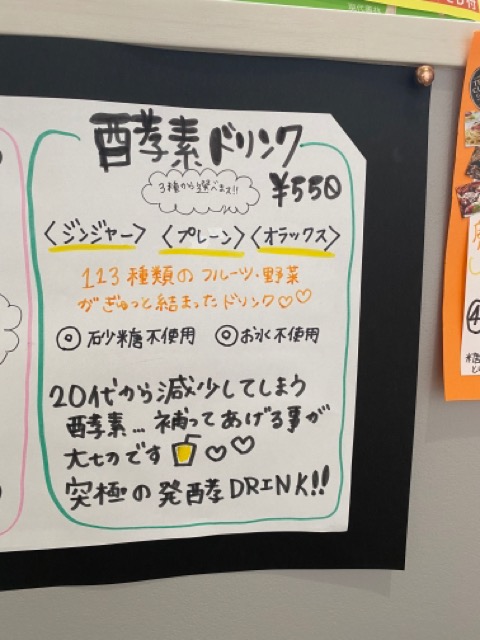 酵素ドリンク
3種から選べます!!
¥550
〈ジンジャー〉〈プレーン〉〈オラックス〉
113種類のフルーツ・野菜
がぎゅっと結まったドリンク♡♡
◎砂糖不使用 ◎お水不使用
20代から減少してしまう
酵素...補ってあげる事が
大切です♡♡
究極の発酵DRINK!!